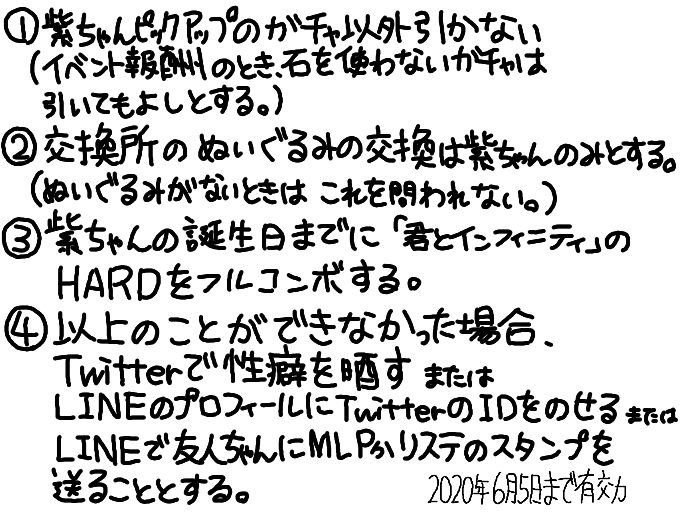 ①紫ちゃんピックアップのガチャ以外引かない
(イベント報酬のとき、石を使わないガチャは
引いてもよしとする。)
②交換所のぬいぐるみの交換は紫ちゃんのみとする。
(ぬいぐるみがないときはこれを問われない。)
③紫ちゃんの誕生日までに「君とインフィニティ」の
HARDをフルコンボする。
④以上のことができなかった場合、
Twitterで性癖を晒すまたは
LINEのプロフィールにTwitterのIDをのせるまたは
LINEで友人ちゃんにMLPかリステのスタンプを
送ることとする。
2020年6月5日まで有効